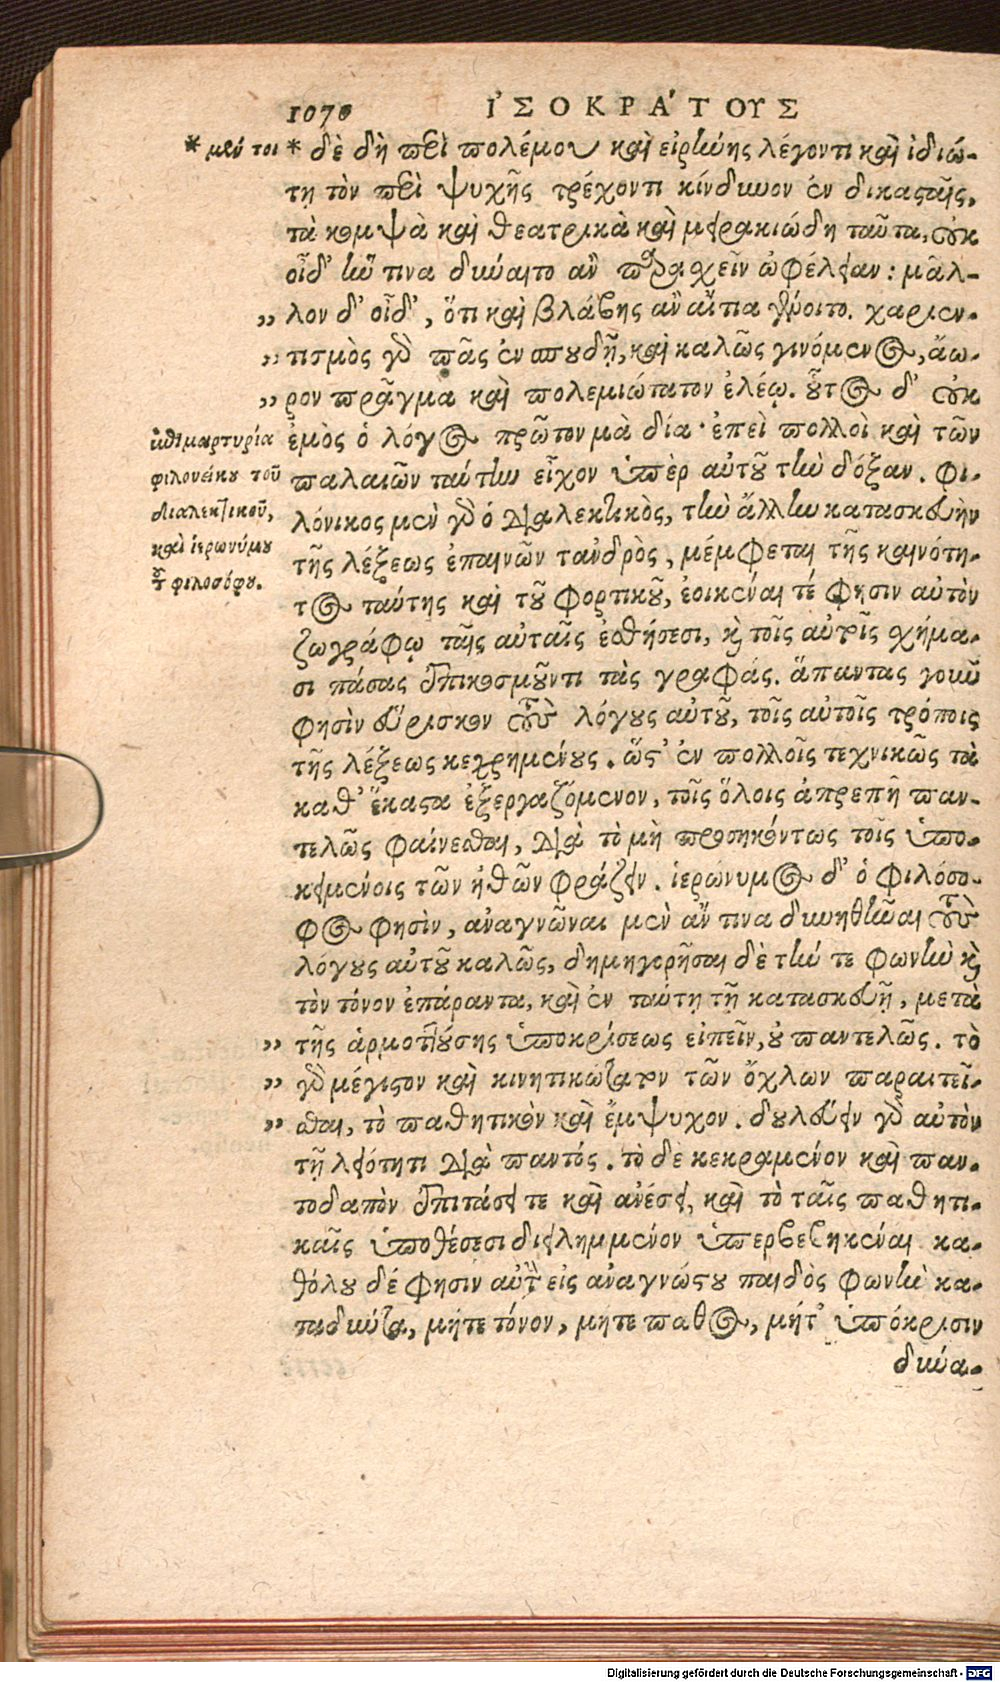 1070 ἸΣΟΚΡΆΤΟΥΣ
* μέν τοι * δὲ δὴ περὶ πολέμου καὶ εἰρήνης λέγοντι καὶ ἰδιώ-
τῃ τὸν περὶ ψυχῆς τρέχοντι κίνδυνον ἐν δικασταῖς,
τὰ κομψὰ καὶ θεατρικὰ καὶ μειρακιώδη ταῦτα, οὐκ
οἶδ' ἥν τινα δύναιτο ἂν παραχεῖν ὠφέλειαν: μᾶλ-
„ λον δ' οἶδ', ὅτι καὶ βλάβης ἂν αἴτια γένοιτο. χαριεν-
„ τισμὸς γὰρ πᾶς ἐν σπουδῇ, καὶ καλῶς γινόμενος, ἄω-
„ ρον πρᾶγμα καὶ πολεμιώτατον ἐλέῳ. οὗτος δ' οὐκ
ἐμὸς ὁ λόγος πρῶτον μὰ δία· ἐπεὶ πολλοὶ καὶ τῶν
παλαιῶν ταύτην εἶχον ὑπὲρ αὐτοῦ τὴν δόξαν. Φι-
λόνικος μὲν γὰρ ὁ διαλεκτικὸς, τὴν ἄλλην κατασκευὴν
τῆς λέξεως ἐπαινῶν τἀνδρὸς, μέμφεται τῆς καινότη-
τος ταύτης καὶ τοῦ φορτικοῦ, ἐοικέναι τέ φησιν αὐτὸν
ζωγράφῳ ταῖς αὐταῖς ἐσθήσεσι, καὶ τοῖς αὐτοῖς χήμα-
σι πάσας ἐπικοσμοῦντι τὰς γραφάς. ἅπαντας γοῦν
φησὶν εὕρισκον τοὺς λόγους αὐτοῦ, τοῖς αὐτοῖς τρόποις
τῆς λέξεως κεχρημένους. ὥστ' ἐν πολλοῖς τεχνικῶς τὰ
καθ' ἕκαστα ἐξεργαζόμενον, τοῖς ὅλοις ἀπρεπῆ παν-
τελῶς φαίνεσθαι, διὰ τὸ μὴ προσηκόντως τοῖς ὑπο-
κειμένοις τῶν ἠθῶν φράζειν. ἱερώνυμος δ' ὁ φιλόσο-
φος φησὶν, ἀναγνῶναι μὲν ἄν τινα δυνηθῆναι τοὺς
λόγους αὐτοῦ καλῶς, δημηγορῆσαι δὲ τήν τε φωνὴν καὶ
τὸν τόνον ἐπάραντα, καὶ ἐν ταύτῃ τῇ κατασκευῇ, μετὰ
„ τῆς ἁρμοττούσης ὑποκρίσεως εἰπεῖν, οὐ παντελῶς. τὸ
„ γὰρ μέγιστον καὶ κινητικώτατον τῶν ὄχλων παραιτεῖ-
„ σθαι, τὸ παθητικὸν καὶ ἔμψυχον. δουλεύειν γὰρ αὐτὸν
τῇ λειότητι διὰ παντός. τὸ δὲ κεκραμένον καὶ παν-
τοδαπὸν ἐπιτάσει τε καὶ ἀνέσει, καὶ τὸ ταῖς παθητι-
καῖς ὑποθέσεσι διειλημμένον ὑπερβεβηκέναι κα-
θόλου δέ φησιν αὐτὸν εἰς ἀναγνώστου παιδὸς φωνὴν κα-
ταδύντα, μήτε τόνον, μήτε παθος, μήτ' ὑπόκρισιν
δύνα-
ἀντιμαρτυρία
φιλονείκου τοῦ
διαλεκτικοῦ,
καὶ ἱερωνύμου
τοῦ φιλοσόφου.
Digitalisierung gefördert durch die Deutsche Forschungsgemeinschaft - DFG